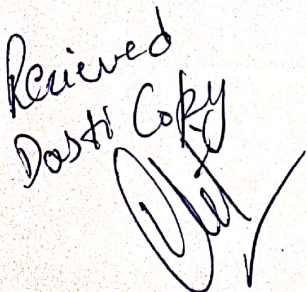 Recieved
Dasti Copy